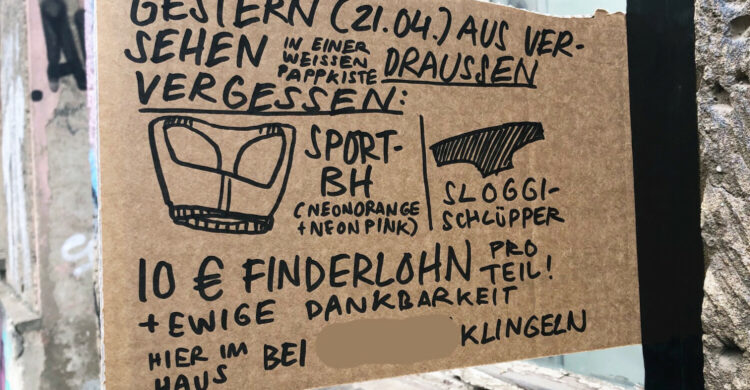 GESTERN (21.04.) AUS VER-
SEHEN IN EINER WEISSEN PAPPKISTE DRAUSSEN
VERGESSEN:
SPORT-
BH
(NEONORANGE
+NEONPINK)
SLOGGI-
SCHLÜPPER
10 € FINDERLOHN PRO TEIL!
+ EWIGE DANKBARKEIT
HIER IM HAUS BEI KLINGELN